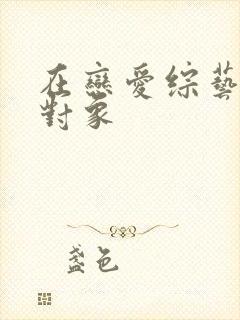 在戀愛綜藝
對象
盞色